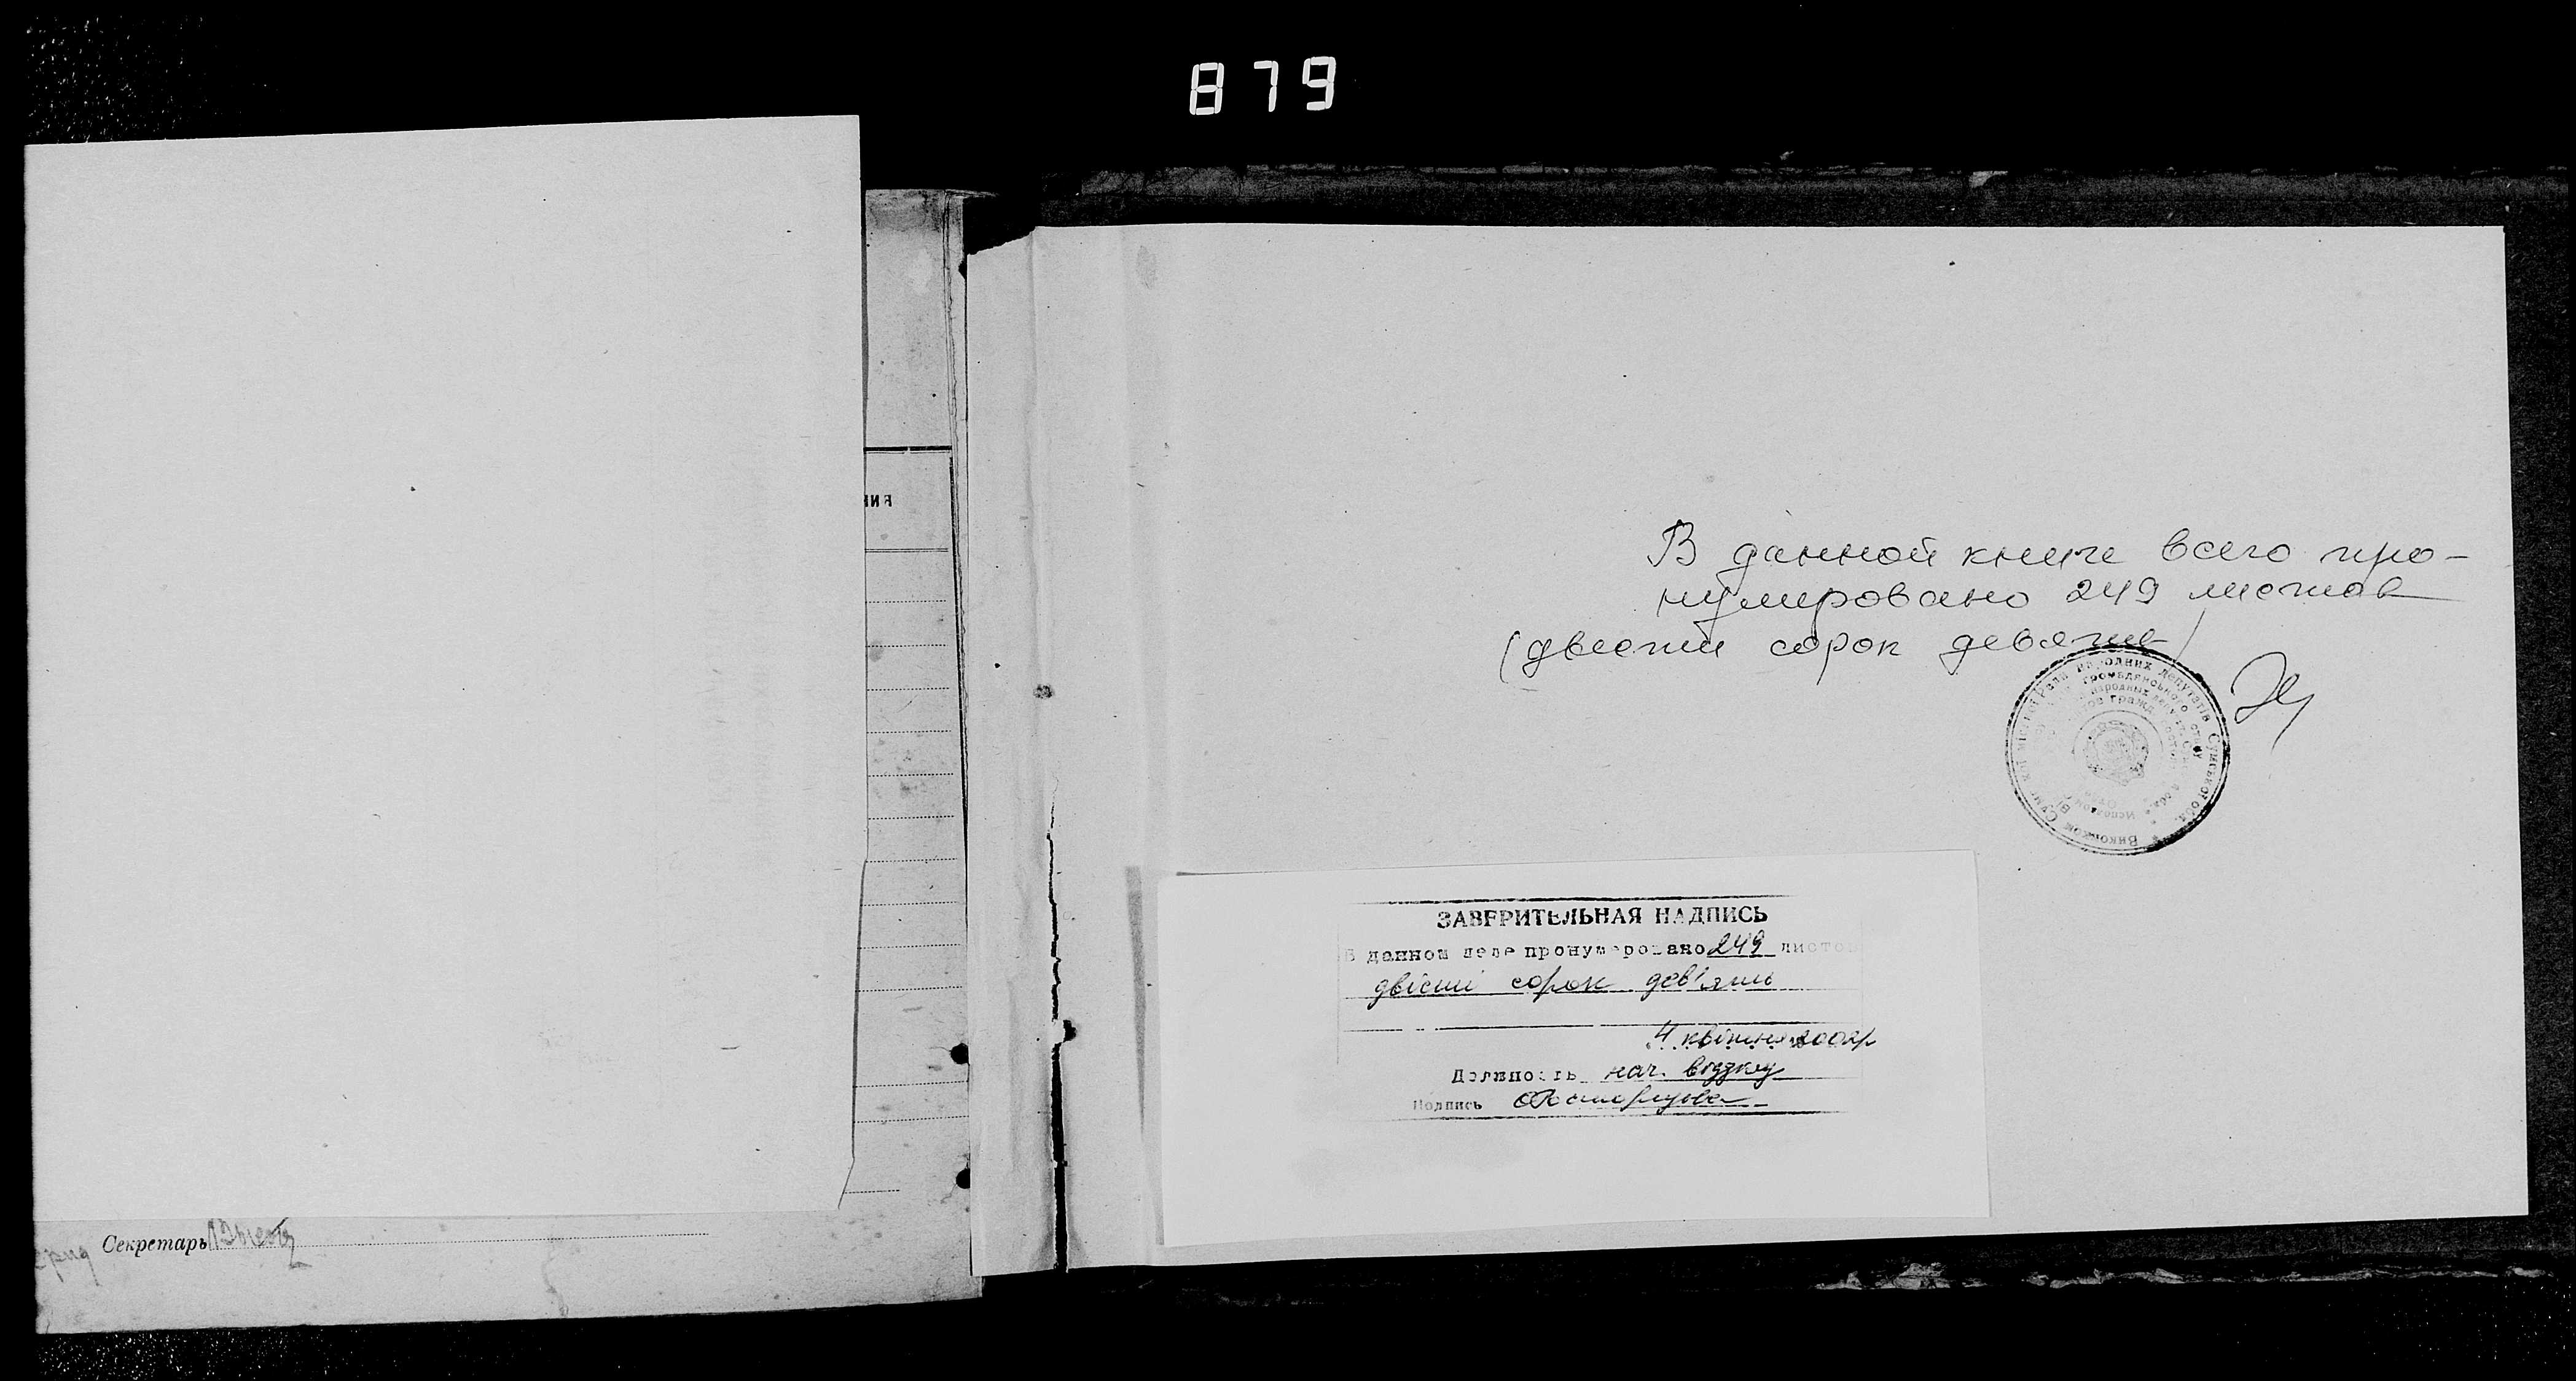 879
ния
Секретарь
В данной книге всего про-
нумеровано 249 листов
(двести сорок девять)
Виконком Сумської міської Ради народних депутатів Сумської обл.
громадянського стану
народных депу
гражд
ЗАВЕРИТЕЛЬНАЯ НАДПИСЬ
В данном деле пронумеровано 249 листов
двісті сорок дев'ять
4 квітня 2002р
Должность нач. відділу
Подпись